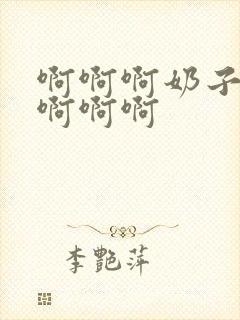 啊啊啊奶子
啊啊啊
李艷萍